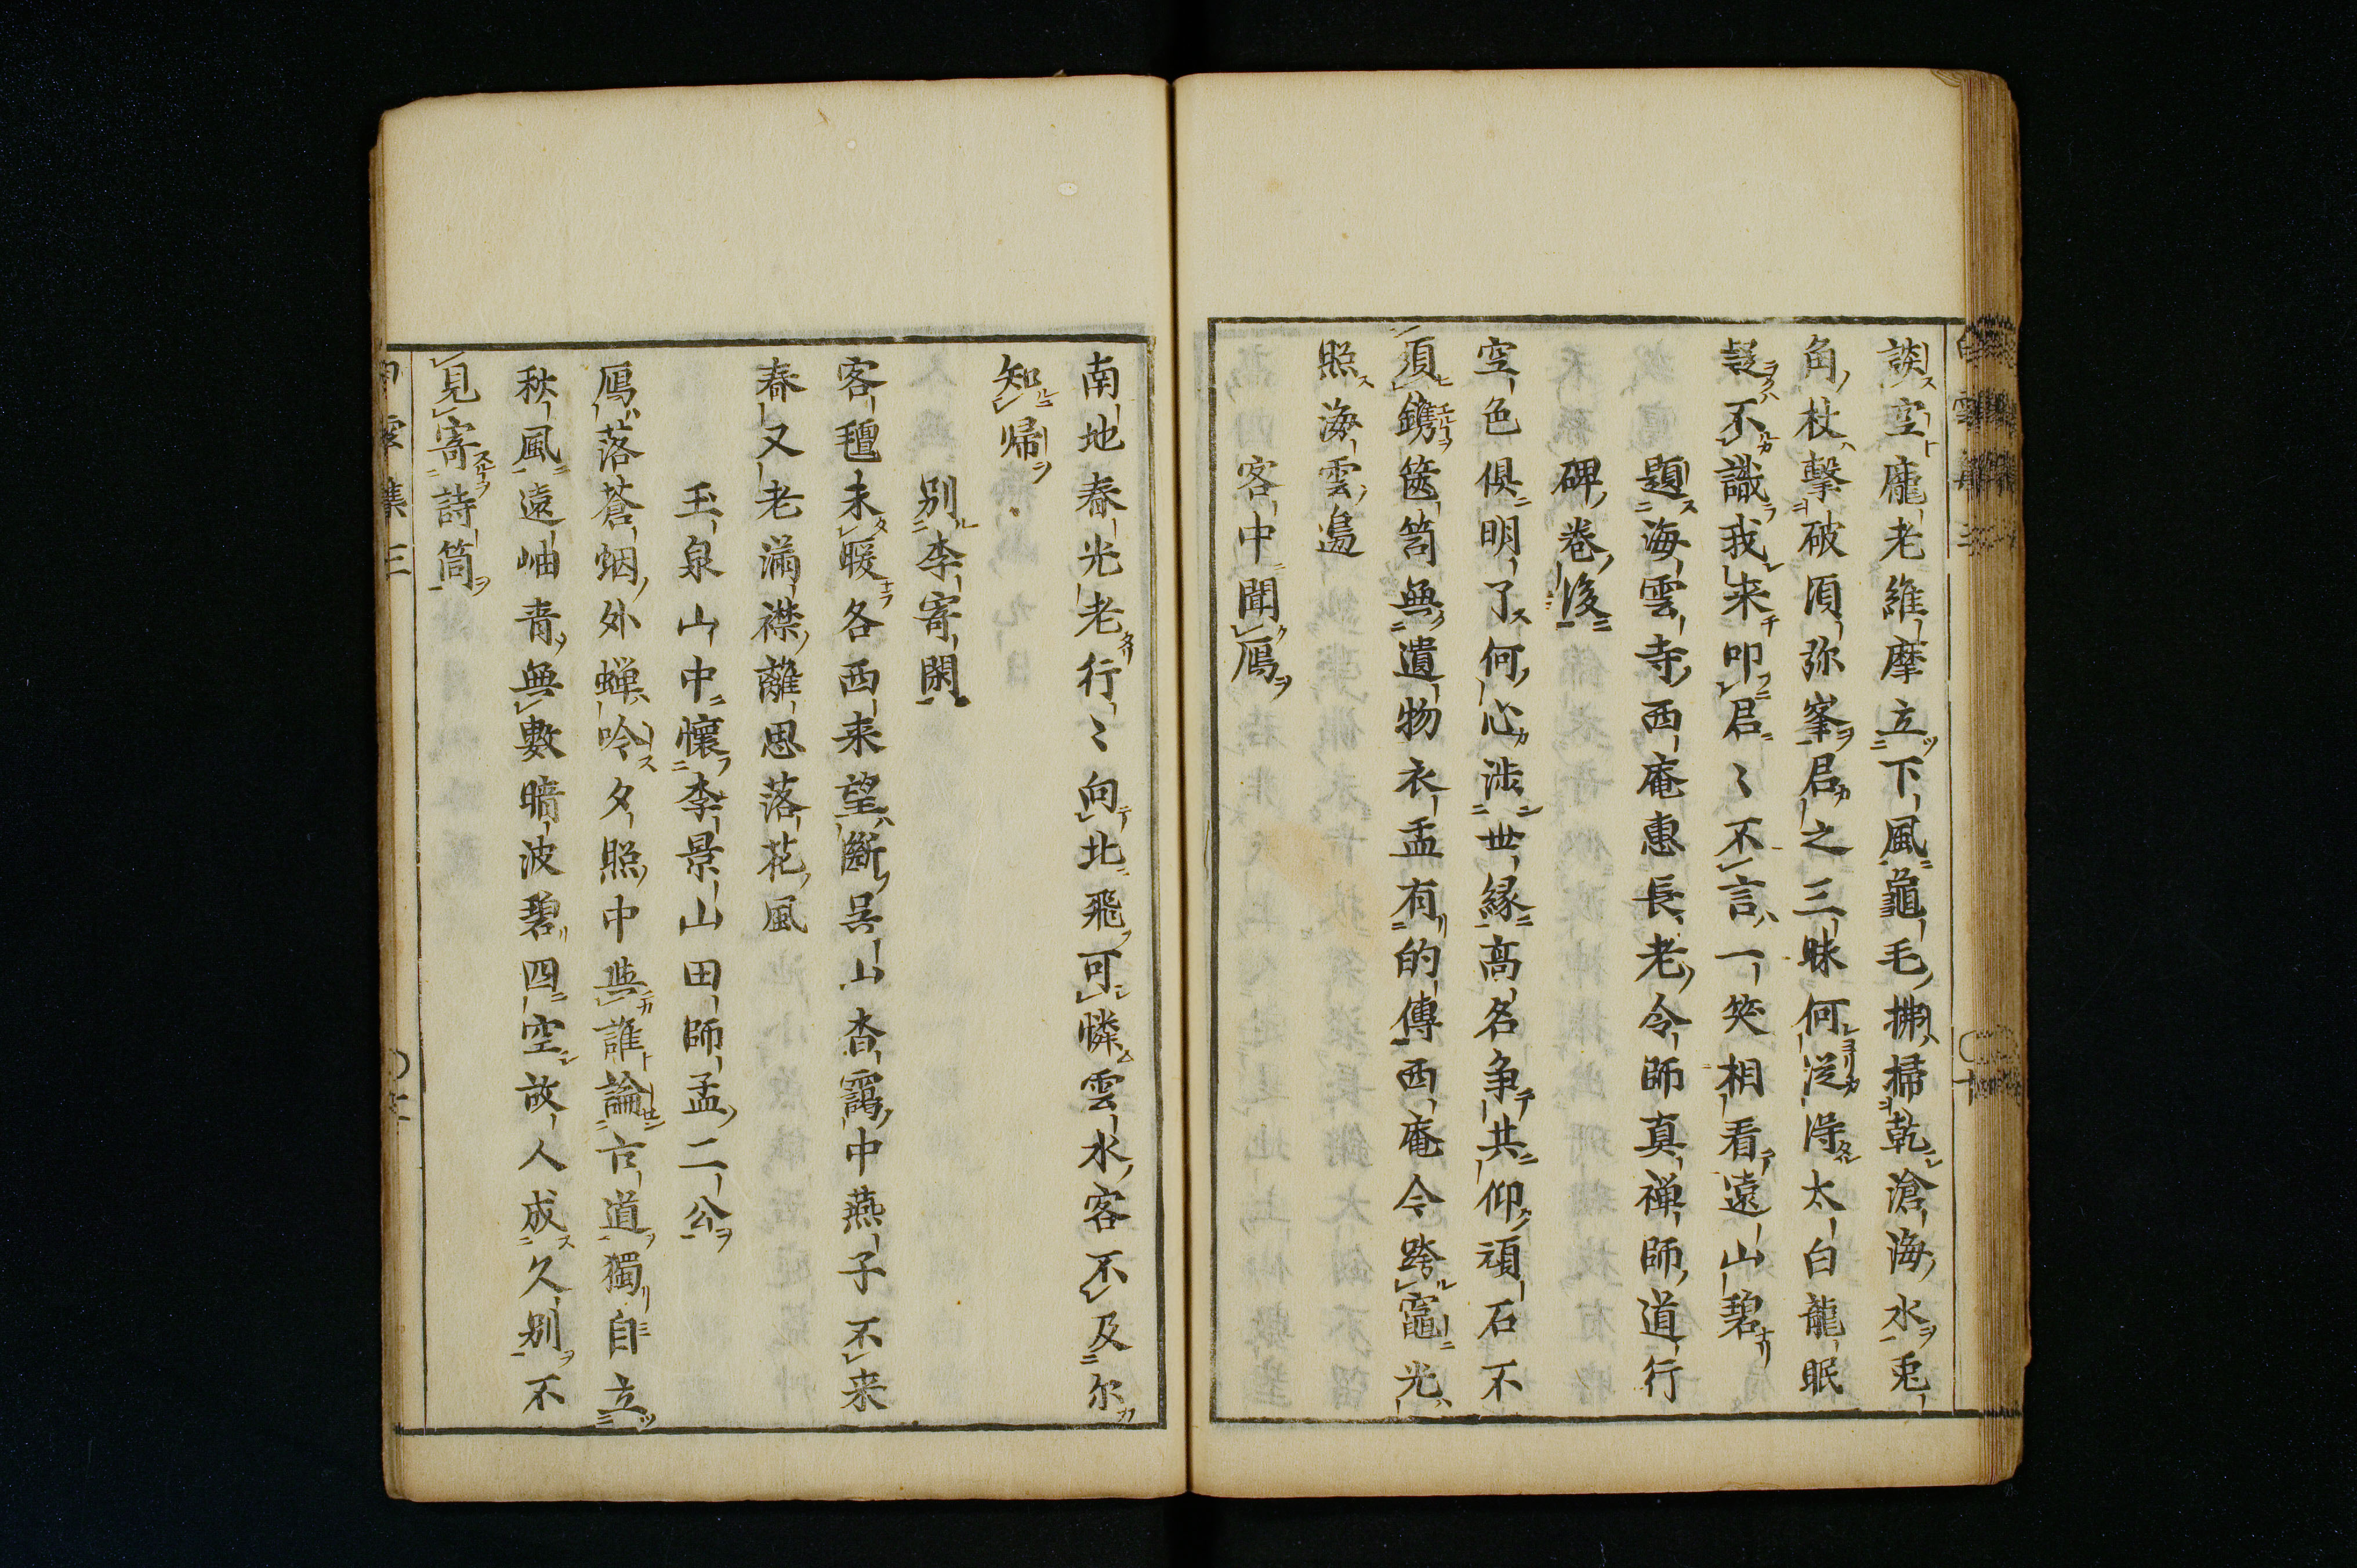 談空龐老維摩立下風龜毛拂掃乾滄海水兎
角杖擊破須弥峯君之三昧何從得太白龍眠
疑不識我来叩君〻不言一笑相看遠山碧
題海雲寺西庵惠長老令師真禅師道行
碑卷後
空色俱明了何心渉世縁高名争共仰頑石不
須鐫篋笥無遺物衣盂有的傳西庵今跨竈光
照海雲邉
客中聞鴈
南地春光老行〻向北飛可憐雲水客不及尔
知帰
別李寄閑
客氊未暖各西来望斷呉山杳靄中燕子不来
春又老滿襟離思落花風
玉泉山中懷李景山田師孟二公
鴈落蒼烟外蝉吟夕照中與誰論古道獨自立
秋風遠岫青無數晴波碧四空故人成久别不
見寄詩筒